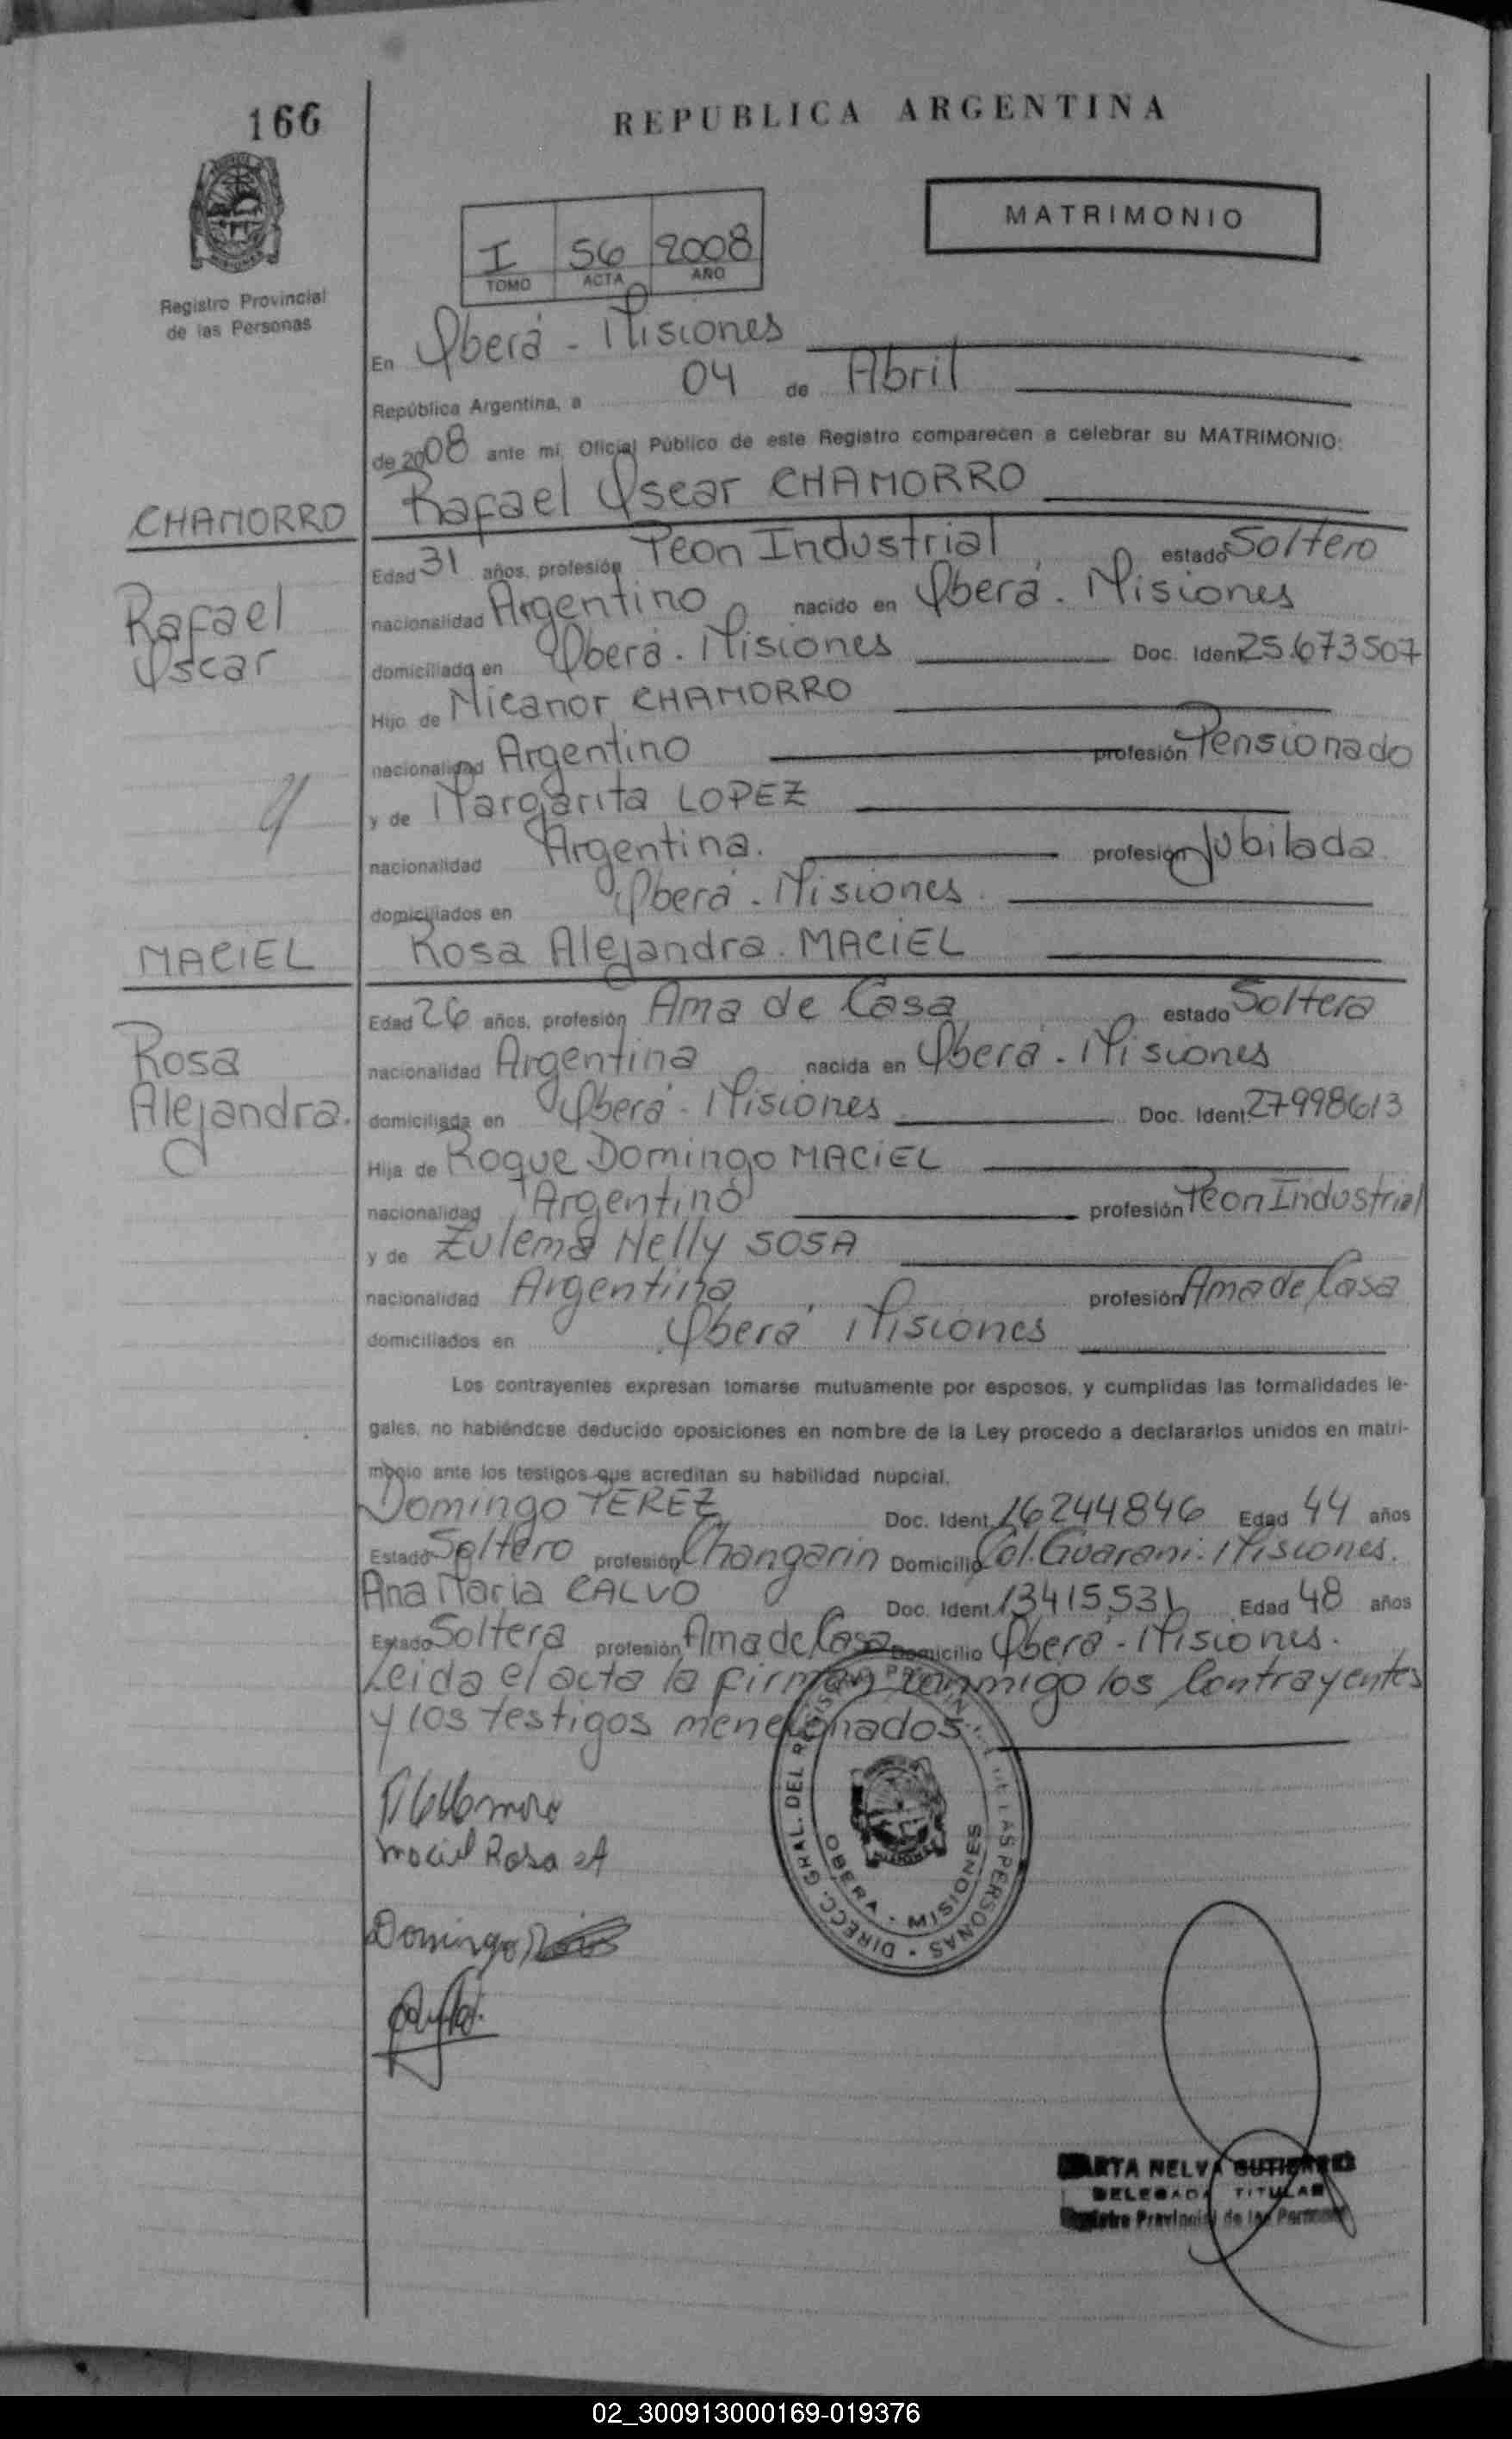 166
REPUBLICA ARGENTINA
MATRIMONIO
I 56 2008
TOMO ACTA AÑO
Registro Provincial
de las Personas
En Oberá - Misiones
República Argentina, a 04 de Abril
de 2008 ante mi, Oficial Público de este Registro comparecen a celebrar su MATRIMONIO:
CHAMORRO Rafael Oscar CHAMORRO
Edad 31 años, profesión Peon Industrial estado Soltero
Rafael nacionalidad Argentino nacido en Oberá - Misiones
Oscar domiciliado en Oberá - Misiones Doc. Ident. 25.673507
Hijo de Nicanor CHAMORRO
nacionalidad Argentino profesión Pensionado
y de Margarita LOPEZ
nacionalidad Argentina. profesión Jubilada.
domiciliados en Oberá - Misiones
MACIEL Rosa Alejandra MACIEL
Edad 26 años, profesión Ama de Casa estado Soltera
Rosa nacionalidad Argentina nacida en Oberá - Misiones
Alejandra. domiciliada en Oberá - Misiones Doc. Ident. 27998613
Hija de Roque Domingo MACIEL
nacionalidad Argentino profesión Peon Industrial
y de Zulema Nelly SOSA
nacionalidad Argentina profesión Ama de Casa
domiciliados en Oberá Misiones
Los contrayentes expresan tomarse mutuamente por esposos, y cumplidas las formalidades le-
gales, no habiéndose deducido oposiciones en nombre de la Ley procedo a declararlos unidos en matri-
monio ante los testigos que acreditan su habilidad nupcial.
Domingo PEREZ Doc. Ident. 16244846 Edad 44 años
Estado Soltero profesión Changarin Domicilio Col. Guarani. Misiones.
Ana Maria CALVO Doc. Ident. 13415531 Edad 48 años
Estado Soltera profesión Ama de Casa Domicilio Oberá - Misiones.
Leida el acta la firman conmigo los Contrayentes
y los testigos mencionados
Maciel Rosa A
Domingo
DIRECC. GRAL. DEL REGISTRO PROVINCIAL DE LAS PERSONAS
OBERA - MISIONES
MARTA NELVA GUTIERREZ
DELEGADA TITULAR
Registro Provincial de las Personas
02_300913000169-019376